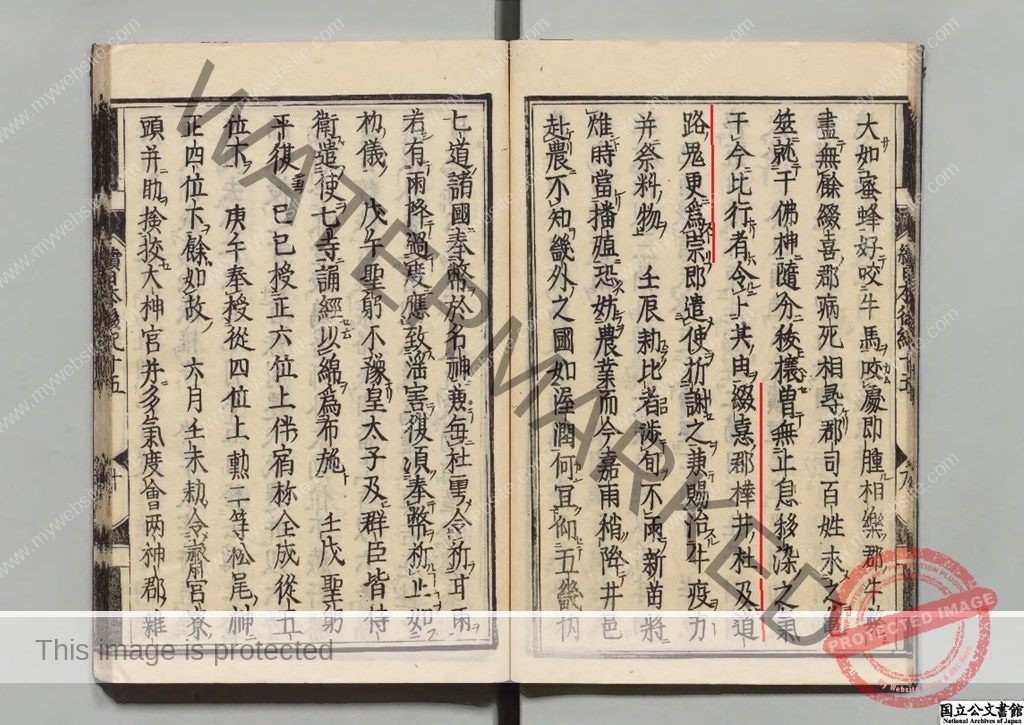 大如蜜蜂好咬牛馬咬處即腫相樂郡牛
盡無餘綴喜郡病死相尋郡司百姓求之
筮就于佛神隨分祓禳曽無止息移染之氣
于今比行者令上其由綴憙郡樺井社及道
路鬼更為祟即遣使祈謝之兼賜治牛疫力
并祭料物 壬辰勅比者渉旬不雨新苗将
雖時當播殖恐妨農業而今嘉雨稍降井邑
赴農不知畿外之國如渥潤何宜仰五畿内
七道諸國奉幣於名神兼毎社
若有雨降過度應致滛害復須奉幣祈止如
初儀 戊午聖躬不豫皇太子及群臣皆侍
衛遣使七寺誦經以綿為布施 壬戌聖躬
平復 己巳授正六位上伴宿祢全成從五
位下 庚午奉授從四位上勲二等松尾神
正四位下餘如故 六月壬未勅令齋宮寮
頭并助撿挍大神宮并多氣度會兩神郡雜
續日本後紀十五 九
續日本後紀十五 十
WATERMARKED
www.mywebsite.com
This image is protected
WATERMARK PLUGIN
PROTECTED IMAGE
My Website
国立公文書館
National Archives of Japan